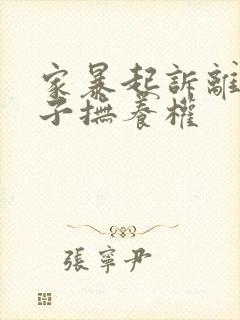 家暴起訴離
子撫養權
張寧尹